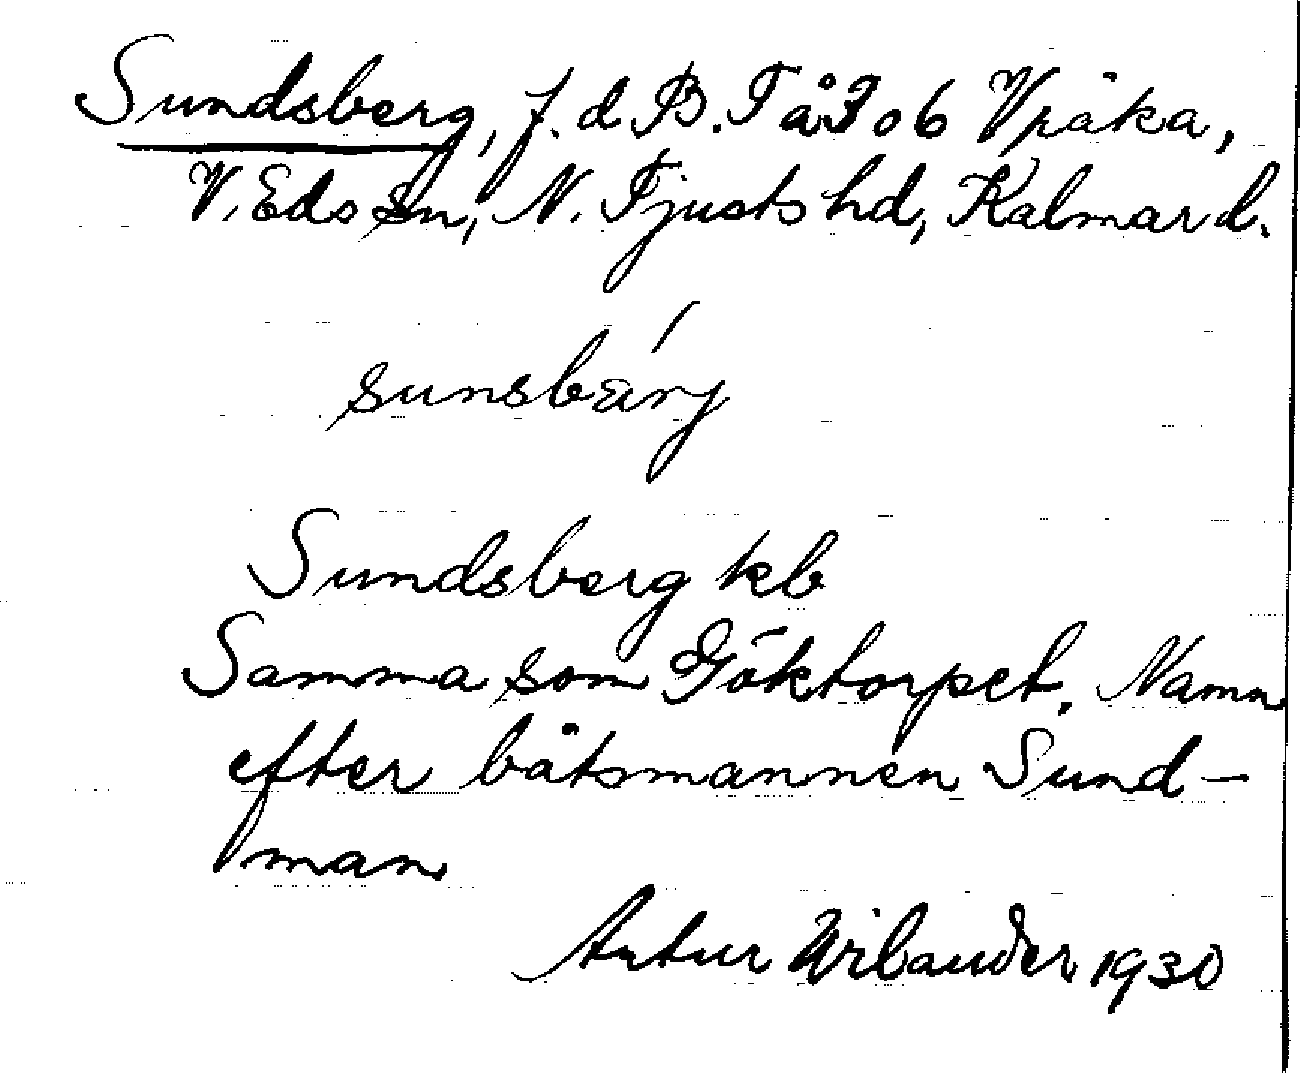 Sundsberg, f. d B. T å 3 o 6 Vräka,
V. Eds sn, N. Tjusts hd, Kalmar l.
sunsbærj
Sundsberg kb
Samma som Göktorpet. Namn
efter båtsmannen Sund-
man
Artur Wilander 1930